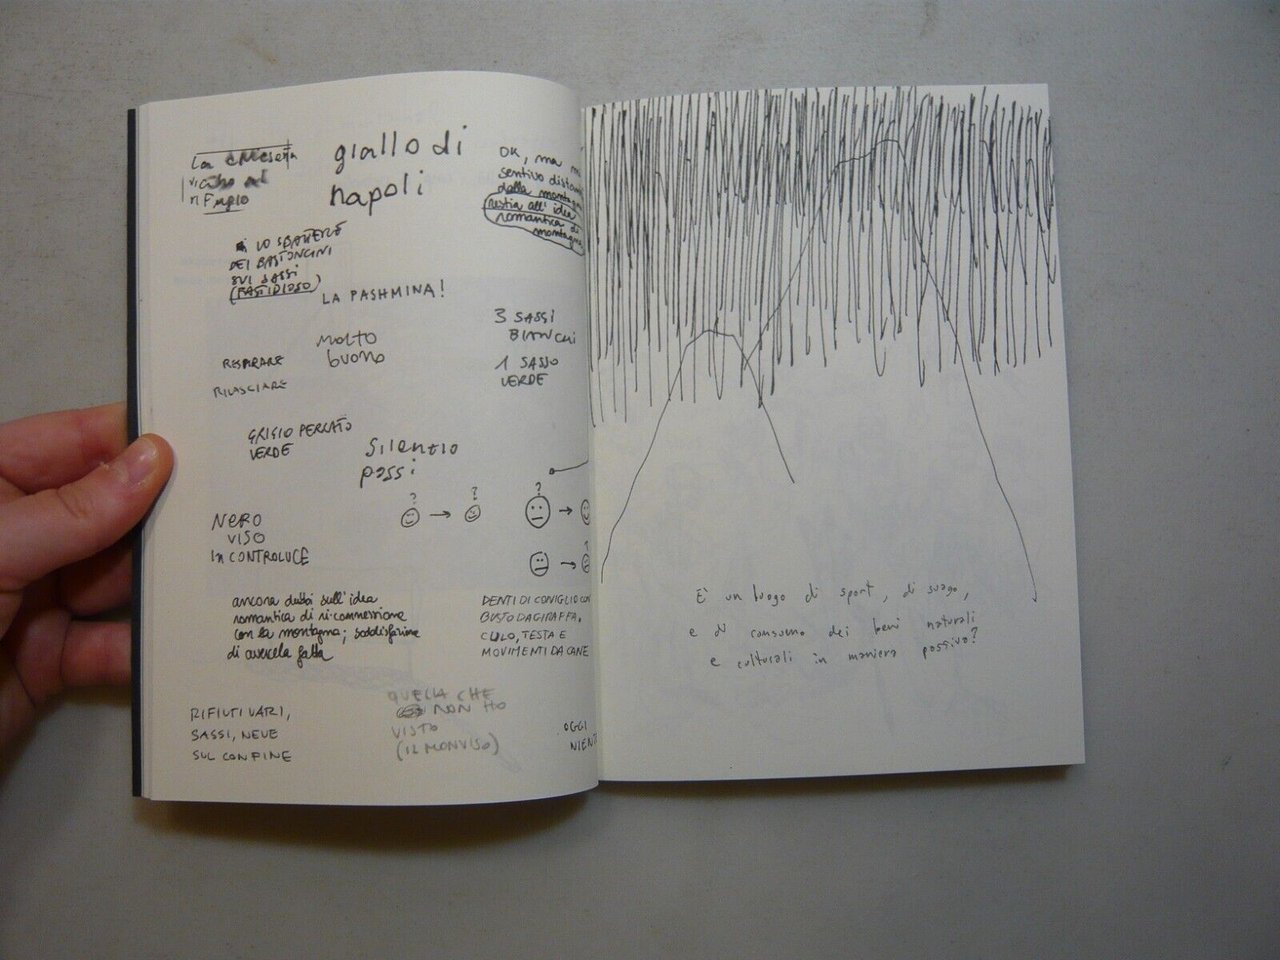 La chiesetta
vicino al
rifugio
giallo di
napoli
OK, ma mi
sentivo dista
dalla montagna
restia all'idea
romantica di
montagna
LO SBATTERE
DEI BASTONCINI
SUI SASSI
(FASTIDIOSO)
LA PASHMINA!
3 SASSI
BIANCHI
1 SASSO
VERDE
MOLTO
buono
RESPIRARE
RILASCIARE
GRIGIO PERLATO
VERDE
Silenzio
passi
? ? ?
NERO
VISO
In CONTROLUCE
ancora dubbi sull'idea
romantica di ri-connessione
con la montagna; soddisfazione
di avercela fatta
DENTI DI CONIGLIO CON
BUSTO DA GIRAFFA.
CULO, TESTA E
MOVIMENTI DA CANE
RIFIUTI VARI,
SASSI, NEVE
SUL CONFINE
QUELLA CHE
NON HO
VISTO
(IL MONVISO)
OGGI
NIENTE
È un luogo di sport, di svago,
e di consumo dei beni naturali
e culturali in maniera passiva?